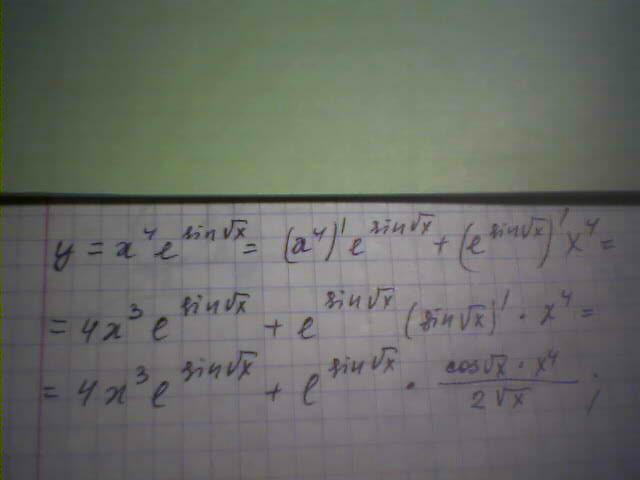 y = x⁴e^(sin√x) = (x⁴)'e^(sin√x) + (e^(sin√x))'x⁴ =
= 4x³e^(sin√x) + e^(sin√x)(sin√x)' · x⁴ =
= 4x³e^(sin√x) + e^(sin√x) · (cos√x · x⁴)/(2√x) ;